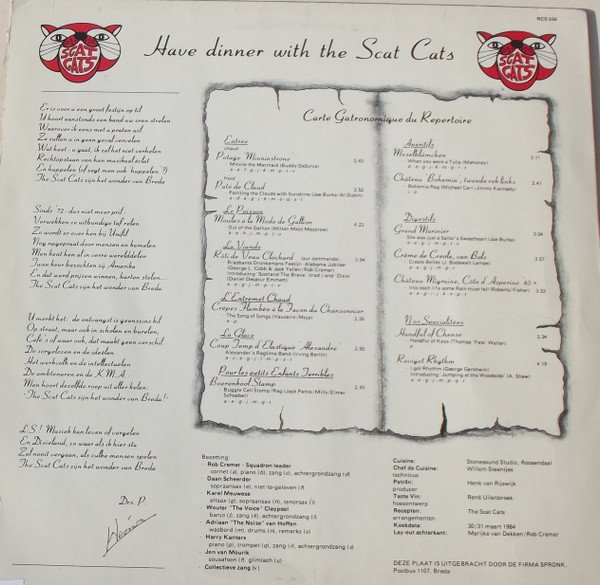 RCS 556
SCAT
CATS
Have dinner with the Scat Cats
SCAT
CATS
Er is voor u een groot festijn op til
U hoort aanstonds een band uw oren strelen
Waarover ik eens met u praten wil
Ze zullen u in geen geval vervelen
Wat heet - u gaat, ik zal het niet verhelen
Rechtopstaan van hun muzikaal eclat
En huppelen (of zegt men ook huppelen?)
The Scat Cats zijn het wonder van Breda
Sinds '72 - dus niet meer pril -
Verwekken ze uitbundige taf'relen
Zo wordt er over hen bij Unifil
Nog nagepraat door mensen en kamelen
Men kent hen al in verre werelddelen
Twee keer bezochten zij Amerika
En dat werd prijzen winnen, harten stelen...
The Scat Cats zijn het wonder van Breda
U merkt het: de ontvangst is geenszins kil
Op straat, maar ook in scholen en burelen,
Café's of waar ook, dat maakt geen verschil
De zorgelozen en de ideelen
Het werkvolk en de intellectuelen
De ambtenaren en de K.M.A.-
Men hoort dezelfde roep uit aller kelen:
The Scat Cats zijn het wonder van Breda!-
L.S.! Muziek kan leven of vergelen
En Dixieland, zo waar als ik hier sta
Zal nooit vergaan, als zulke mensen spelen
The Scat Cats zijn het wonder van Breda
Drs. P
Carte Gatronomique du Répertoire
Entrée
(froid)
Potage Minniestrone 2.43
Minnie the Mermaid (Buddy DeSylva)
(froid)
Paté de Cloud 2.52
Painting the Clouds with Sunshine (Joe Burke/Al Dubin)
Le Poisson
Moules à la Mode de Gallion 4.22
Out of the Gallion (Milton Mezz Mezzrow)
La Viande
Rôti de Veau Clochard (sur commande)
Brabants Dronkemans Feestje - Alabama Jubilee
(George L. Cobb & Jack Yellen/Rob Cramer)
Introducing 'Scotland The Brave' (trad.) and 'Dixie'
(Daniel Decatur Emmett)
L'Entremet Chaud
Crêpes Flambée à la Façon du Chansonnier
The Song of Songs (Vaucaire/Moya)
La Glace
Coup Temp d'Elastique Alexandre 2.55
Alexander's Ragtime Band (Irving Berlin)
Pour les petits Enfants Terribles
Boerenkool Stamp 2.45
Buggle Call Stomp/Rag (Jack Pettis/Mills/Elmer
Schoebel)
Aperitifs
Moselblümchen 3.11
When you wore a Tulip (Mahoney)
Château 'Bohemia', tweede rek links 2.41
Bohemia Rag (Michael Carr/Jimmy Kennedy)
Digestifs
Grand Marinier 3.04
She was just a Sailor's Sweetheart (Joe Burke)
Crème de Creole, van Bols 3.57
Creole Belles (J. Bodewalt Lampe)
Château Migraine, Côte d'Asperine 65+ 3.52
Into each life some Rain must fall (Roberts/Fisher)
Nos Specialitées
Handful of Cheese 2.24
Handful of Keys (Thomas 'Fats' Waller)
Ravigot Rhythm 4.15
I got Rhythm (George Gershwin)
Introducing 'Jumping at the Woodside' (A. Shaw)
Bezetting:
Rob Cramer - Squadron leader
cornet (a), piano (b), zang (c), achtergrondzang (d)
Daan Scheerder
sopraansax (e), niet te-geloven (f)
Karel Meuwese
altsax (g), sopraansax (h), tenorsax (i)
Wouter "The Voice" Claypool
banjo (j), zang (k), achtergrondzang (l)
Adriaan "The Noise" van Hoffen
wasbord (m), drums (n), remarks (o)
Harry Kanters
piano (p), trompet (q), zang (r), achtergrondzang (s)
Jon van Mourik
sousafoon (t), glimlach (u)
Collectieve zang (v)
Cuisine: Stonesound Studio, Roosendaal
Chef de Cuisine: Willem Steentjes
technicus
Patrôn: Henk van Rijswijk
producer
Taste Vin: René Uilenbroek
hoesontwerp
Recepten: The Scat Cats
arrangementen
Kookdata: 30/31 maart 1984
Lay-out achterkant: Marijke van Dekken/Rob Cremer
DEZE PLAAT IS UITGEBRACHT DOOR DE FIRMA SPRONK,
Postbus 1107, Breda